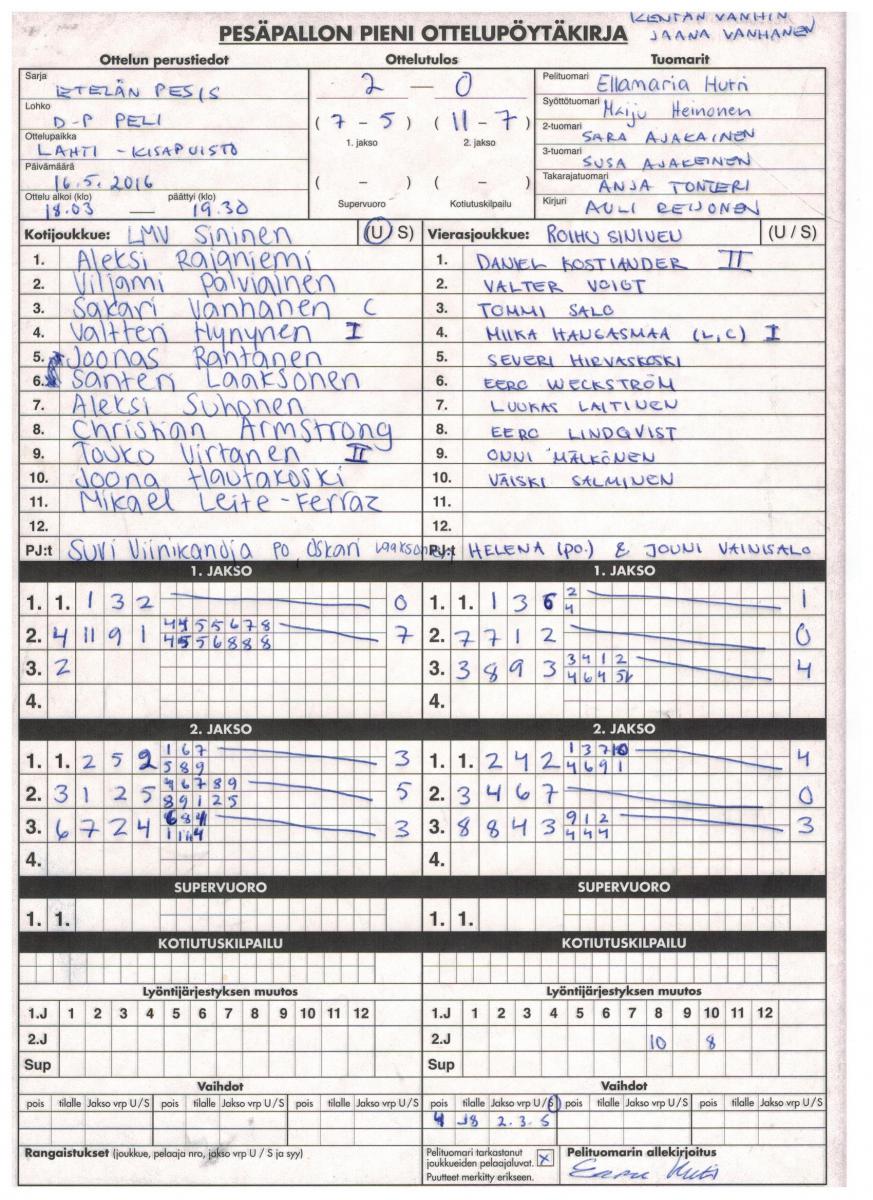 KENTÄN VANHIN
JAANA VANHANEN
PESÄPALLON PIENI OTTELUPÖYTÄKIRJA
Ottelun perustiedot Ottelutulos Tuomarit
Sarja ETELÄN PESIS
Lohko D-P PELI
Ottelupaikka LAHTI - KISAPUISTO
Päivämäärä 16.5.2016
Ottelu alkoi (klo) päättyi (klo)
18.03 — 19.30
2 — 0
( 7 - 5 ) ( 11 - 7 )
1. jakso 2. jakso
( - ) ( - )
Supervuoro Kotiutuskilpailu
Pelituomari Ellamaria Hutri
Syöttötuomari Maiju Heinonen
2-tuomari SARA AJAKAINEN
3-tuomari SUSA AJAKEINEN
Takarajatuomari ANJA TONTERI
Kirjuri AULI REIJONEN
Kotijoukkue: LMV Sininen (U / S)
1. Aleksi Rajaniemi
2. Viljami Palviainen
3. Sakari Vanhanen C
4. Valtteri Hynynen I
5. Joonas Rahtanen
6. Santeri Laaksonen
7. Aleksi Suhonen
8. Christian Armstrong
9. Touko Virtanen II
10. Joona Hautakoski
11. Mikael Leite-Ferraz
12.
PJ:t Suvi Viinikanoja po, Oskari Laaksonen
Vierasjoukkue: ROIHU SININEN (U / S)
1. DANIEL KOSTIANDER II
2. VALTER VOIGT
3. TOMMI SALO
4. MIIKA HANGASMAA (L,C) I
5. SEVERI HIRVASKOSKI
6. EERO WECKSTRÖM
7. LUUKAS LAITINEN
8. EERO LINDQVIST
9. ONNI MÄLKÖNEN
10. VÄISKI SALMINEN
11.
12.
PJ:t HELENA (PO.) & JOUNI VAINISALO
1. JAKSO
1. 1. 1 3 2 0
2. 4 11 9 1 4 4 5 5 6 7 8 7
4 5 5 6 8 8 8
3. 2
4.
1. JAKSO
1. 1. 1 3 6 2 1
4
2. 7 7 1 2 0
3. 3 8 9 3 3 4 1 2 4
4 6 4 5
4.
2. JAKSO
1. 1. 2 5 2 1 6 7 3
5 8 9
2. 3 1 2 5 4 6 7 8 9 5
8 9 1 2 5
3. 6 7 2 4 6 8 4 3
1 11 4
4.
2. JAKSO
1. 1. 2 4 2 1 3 7 10 4
4 6 9 1
2. 3 4 6 7 0
3. 8 8 4 3 9 1 2 3
4 4 4
4.
SUPERVUORO
1. 1.
SUPERVUORO
1. 1.
KOTIUTUSKILPAILU
KOTIUTUSKILPAILU
Lyöntijärjestyksen muutos
1.J 1 2 3 4 5 6 7 8 9 10 11 12
2.J
Sup
Lyöntijärjestyksen muutos
1.J 1 2 3 4 5 6 7 8 9 10 11 12
2.J 10 8
Sup
Vaihdot
pois tilalle Jakso vrp U/S pois tilalle Jakso vrp U/S pois tilalle Jakso vrp U/S
Vaihdot
pois tilalle Jakso vrp U/S pois tilalle Jakso vrp U/S pois tilalle Jakso vrp U/S
4 J8 2. 3. S
Rangaistukset (joukkue, pelaaja nro, jakso vrp U / S ja syy)
Pelituomari tarkastanut
joukkueiden pelaajaluvat. X
Puutteet merkitty erikseen.
Pelituomarin allekirjoitus